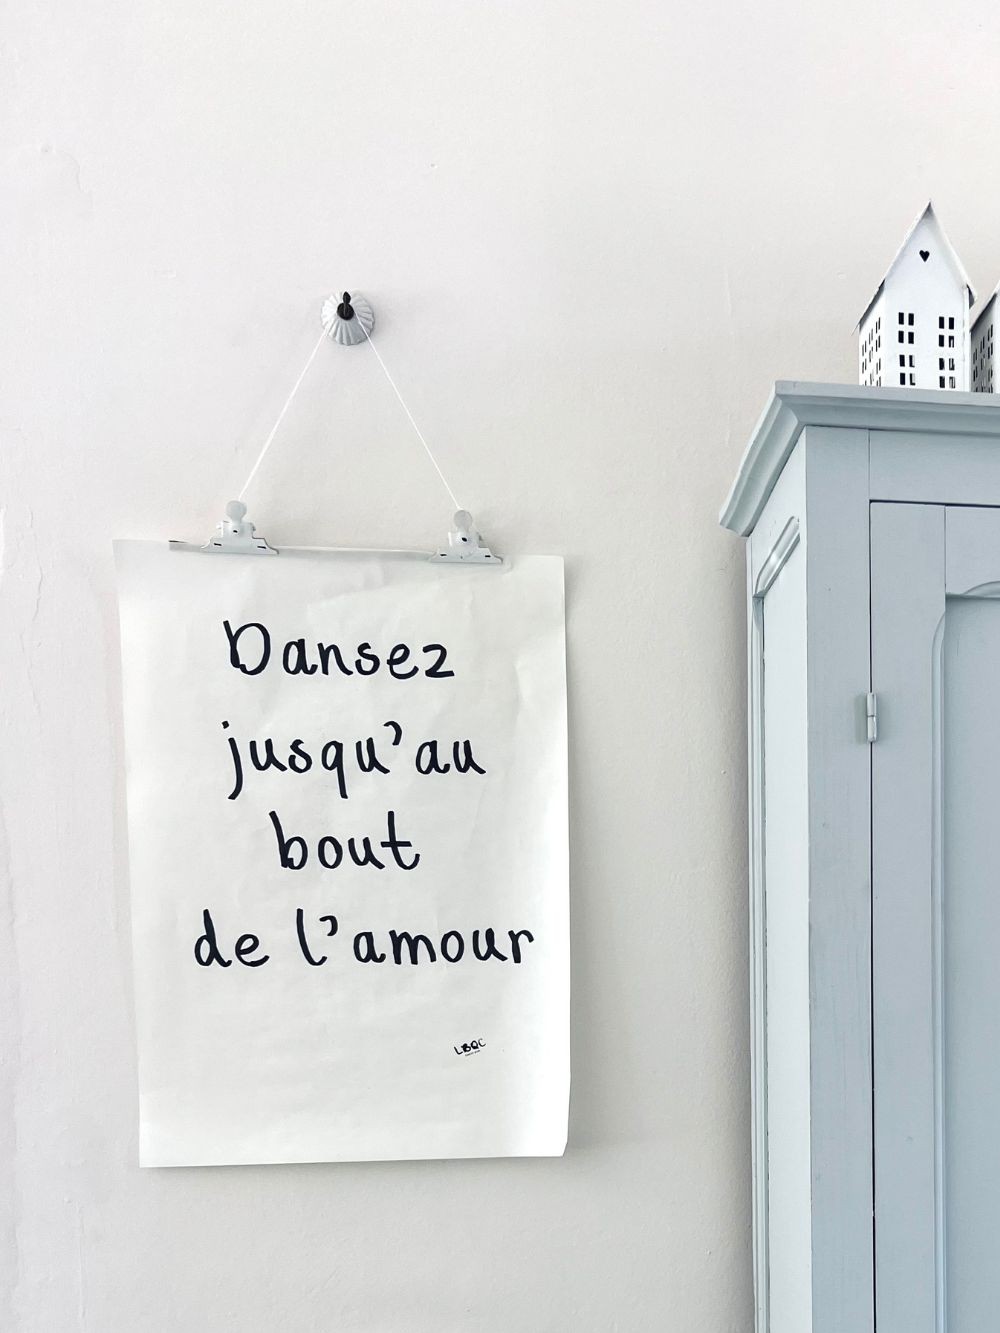 Dansez
jusqu'au
bout
de l'amour
LBQC